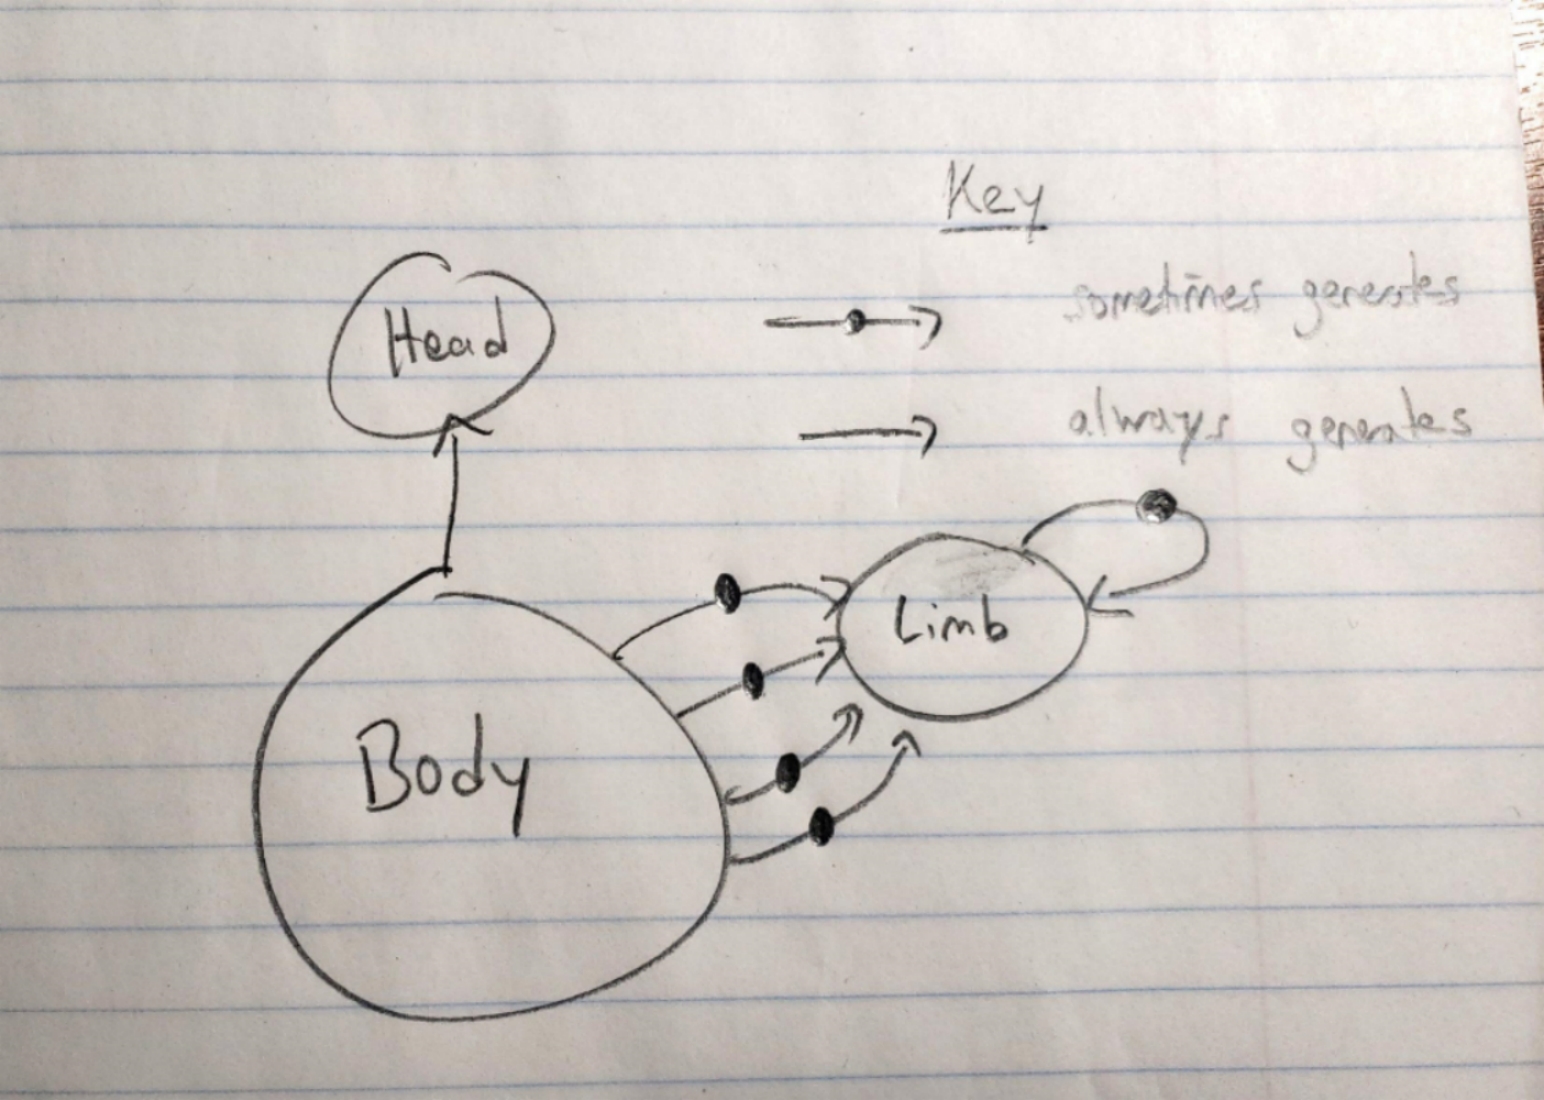 Key
sometimes generates
always generates
Head
Limb
Body